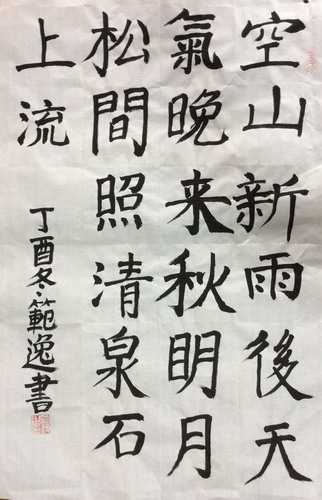 空山新雨後天
氣晚来秋明月
松間照清泉石
上流
丁酉冬範逸書